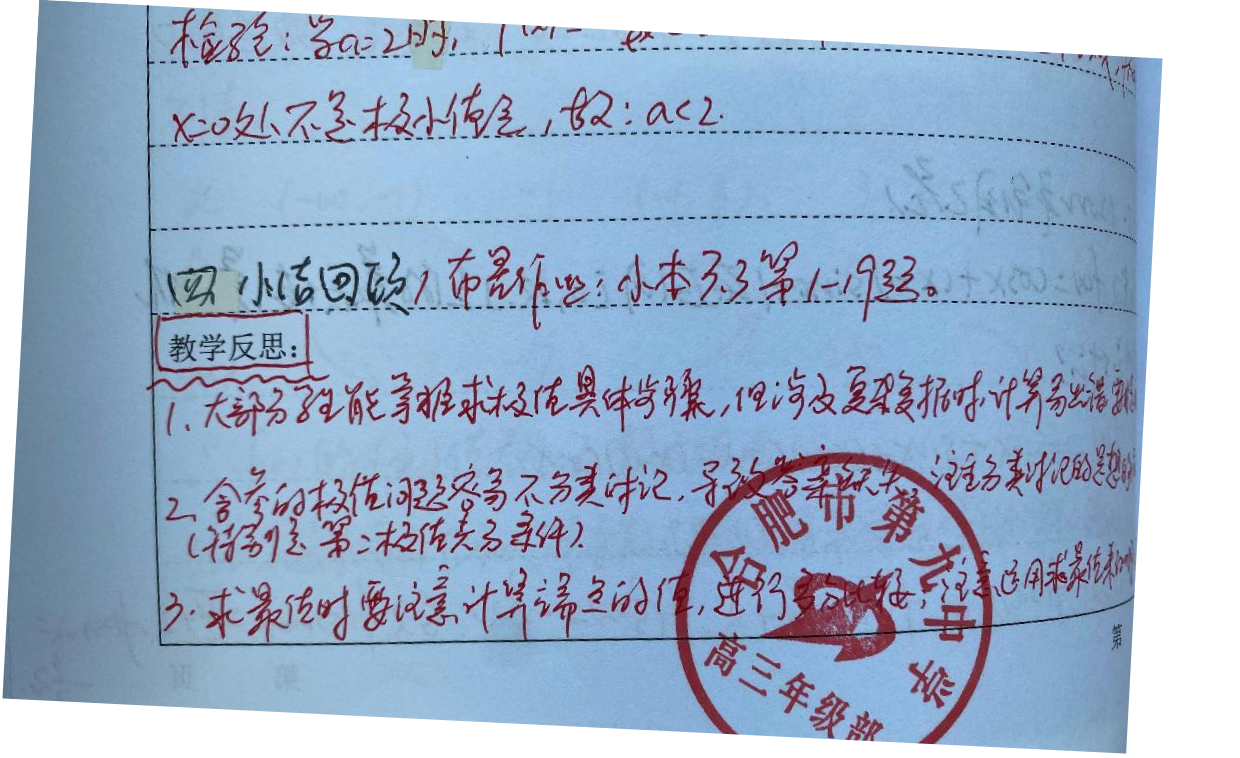 检验：当a=2时，
x=0处不是极小值点，故：a<2.
四 小结回顾，布置作业：小本3.3第1-19题。
教学反思：
1、大部分学生能掌握求极值具体步骤，但涉及复杂数据时，计算易出错
2、含参的极值问题容易不分类讨论，导致答案缺失，注重分类讨论的思想
（特别是第二极值充分条件）.
3. 求最值时要注意计算端点的值，进行充分比较，注意运用求最值
合肥市第九中学
高三年级部
第
第 页